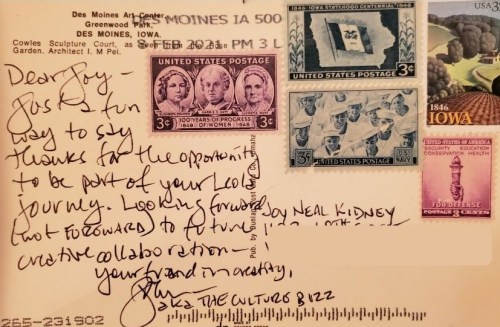 Des Moines Art Center
Greenwood Park,
DES MOINES, IOWA.
Cowles Sculpture Court, as
Garden. Architect I. M. Pei.
DES MOINES IA 500
FEB 2021 PM 3 L
Dear Joy -
Just a fun
way to say
thanks for the opportunity
to be part of your Leora
journey. Looking forward
(not FOREWORD) to future
creative collaboration -
your friend in creativity,
aka THE CULTURE BUZZ
JOY NEAL KIDNEY
UNITED STATES POSTAGE
3¢
3¢
100 YEARS OF PROGRESS
OF WOMEN
1848
1948
1846 IOWA STATEHOOD CENTENNIAL 1946
UNITED STATES POSTAGE
3¢
UNITED STATES POSTAGE
3¢
USA
1846
IOWA
UNITED STATES OF AMERICA
SECURITY EDUCATION
CONSERVATION HEALTH
FOR DEFENSE
POSTAGE 3 CENTS
Pub. by
265-231902